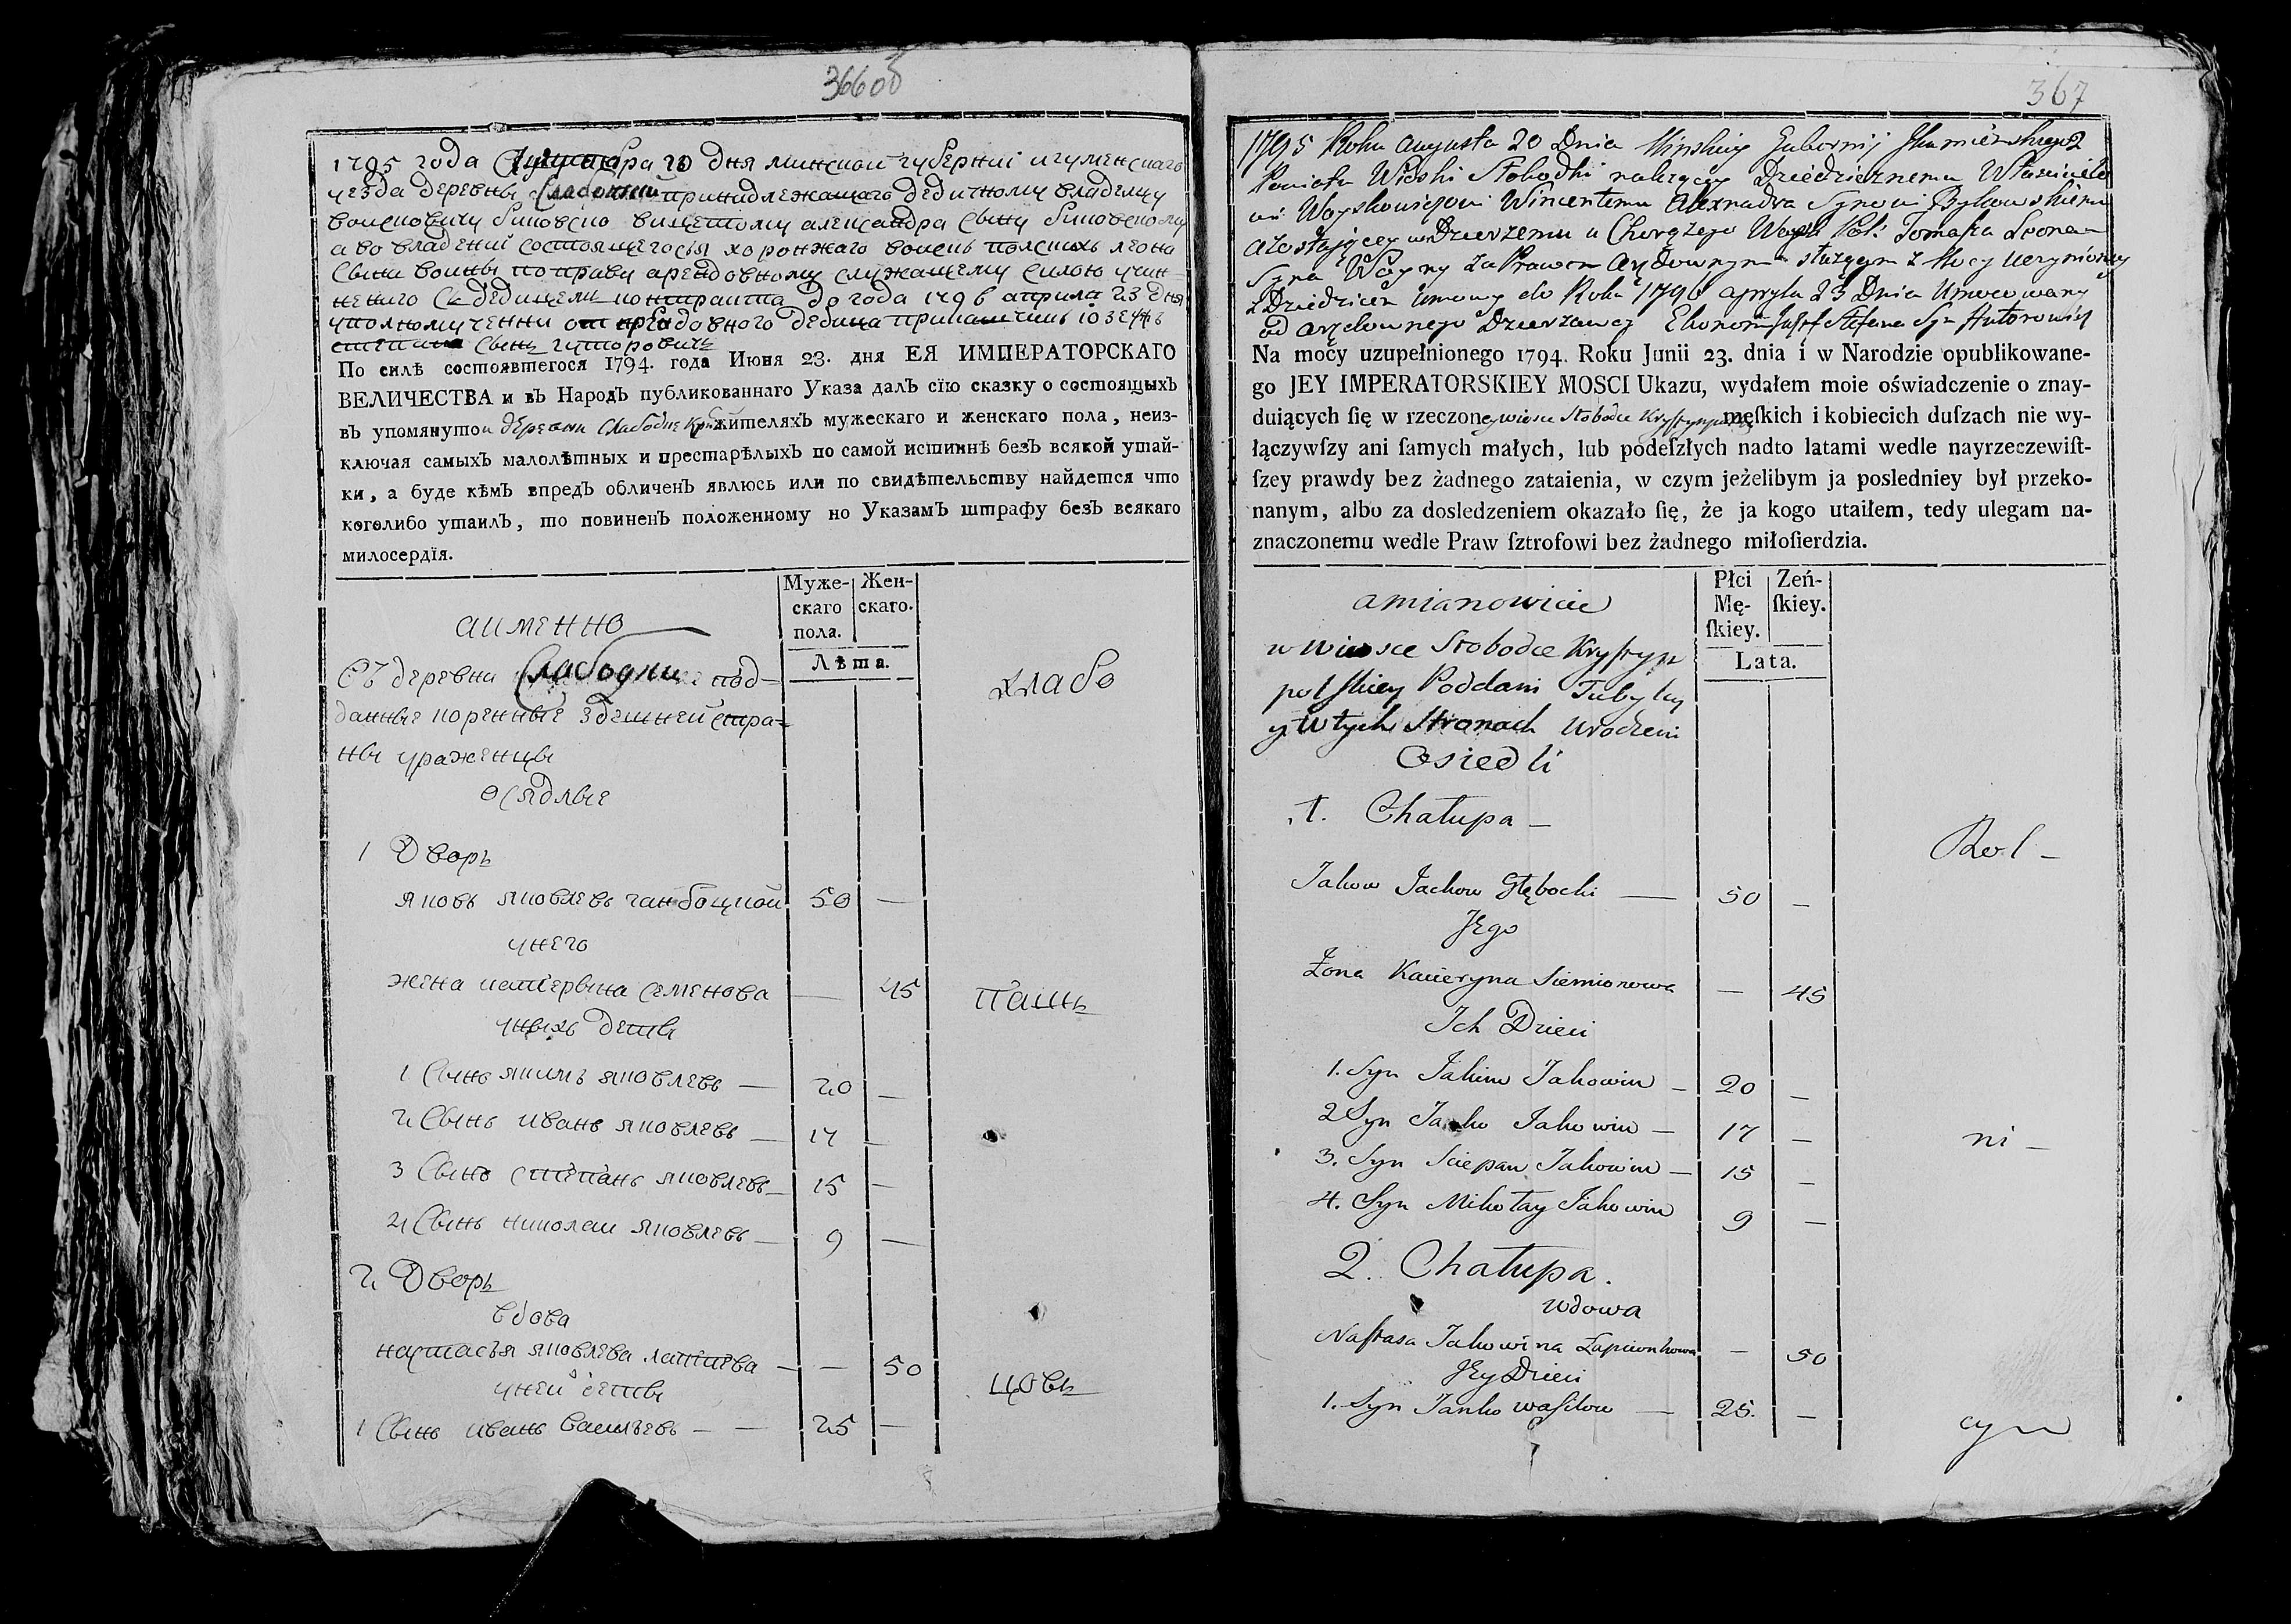 366об
1795 года Августа 20 дня минской губернiи игуменскаго
уезда деревны Слабодки принадлежащаго дедичному владелцу
александра сыну
а во владении состоящегося хоронжаго войскъ полскихъ леона
сына войны по праву арендовному служащему силою учин-
неного с дедицемъ контракта до года 1796 априля 23 дня
уполномоченни от арендовного дедица
сынъ
По силѣ состоявшегося 1794. года Июня 23. дня ЕЯ ИМПЕРАТОРСКАГО
ВЕЛИЧЕСТВА и въ Народъ публикованнаго Указа далъ сїю сказку о состоящыхъ
въ упомянутои деревни Слабодке жителяхъ мужескаго и женскаго пола, неиз-
ключая самыхъ малолѣтныхъ и престарѣлыхъ по самой истиннѣ безъ всякой утай-
ки, а буде кѣмъ впредъ обличенъ явлюсь или по свидѣтельству найдется что
коголибо утаилъ, то повиненъ положенному по Указамъ штрафу безъ всякаго
милосердїя.
Муже-скаго пола. Жен-скаго.
Лѣта.
аименно
Съ деревни Слабодки под-
данные коренные здешней стра-
ны ураженцы
осядлые
хлабо
1 Дворъ
яковъ яковлевъ 50 —
унего
жена катерына семенова — 45
пашъ
уныхъ дети
1 Сынъ якимъ яковлевъ — 20 —
2 Сынъ иванъ яковлевъ — 17 —
3 Сынъ степанъ яковлевъ — 15 —
4 Сынъ николаи яковлевъ — 9 —
2 Дворъ
вдова
настасья яковлева — — 50
цовъ
уней дети
1 Сынъ иванъ васильевъ — — 25 —
367
1795 Roku Augusta 20 Dnia Minskiey Gubernij Ihumienskiego
Powiatu Wioski Słobodki należącey Dziedzicznemu Właścicielo
wi Woyskowiczowi Wincentemu Alexandra Synowi Bykowskiemu
a zostającey w Dzierżeniu u Chorążego Woysk Pol: Tomasza Leona
Syna Woyny za Prawem Arędownym służącym z Mocy uczynioney
z Dziedzicem Umowy do Roku 1796 apryla 23 Dnia Umocowany
od arędownego Dzierżawcy Ekonom Jozef Stefana Syn
Na mocy uzupełnionego 1794. Roku Junii 23. dnia i w Narodzie opublikowane-
go JEY IMPERATORSKIEY MOSCI Ukazu, wydałem moie oświadczenie o znay-
duiących ſię w rzeczoney wiosce Słobodce męſkich i kobiecich duſzach nie wy-
łączywſzy ani ſamych małych, lub podeſzłych nadto latami wedle nayrzeczewiſt-
ſzey prawdy bez żadnego zataienia, w czym jeżelibym ja posledniey był przeko-
nanym, albo za dosledzeniem okazało ſię, że ja kogo utaiłem, tedy ulegam na-
znaczonemu wedle Praw ſztrofowi bez żadnego miłoſierdzia.
Płci Mę-ſkiey. Zeń-ſkiey.
Lata.
amianowicie
w wiosce Słobodce Krystyn
polskiey Poddani Tubylcy
y w tych Stronach urodzeni
Osiedli
1. Chałupa —
Rol —
Jakow Jackow Głębocki — 50 —
Jego
Żona Kacieryna Siemionowa — 45
Ich Dzieci
1. Syn Jakim Jakowiw — 20 —
2 Syn Janko Jakowiw — 17 —
ni —
3. Syn Sciepan Jakowiw — 15 —
4. Syn Mikołay Jakowiw 9 —
2. Chałupa.
wdowa
Nastasa Jakowina Łapcionkowa — 50
Jey Dzieci
1. Syn Janko Wasilow — 25. —
cy